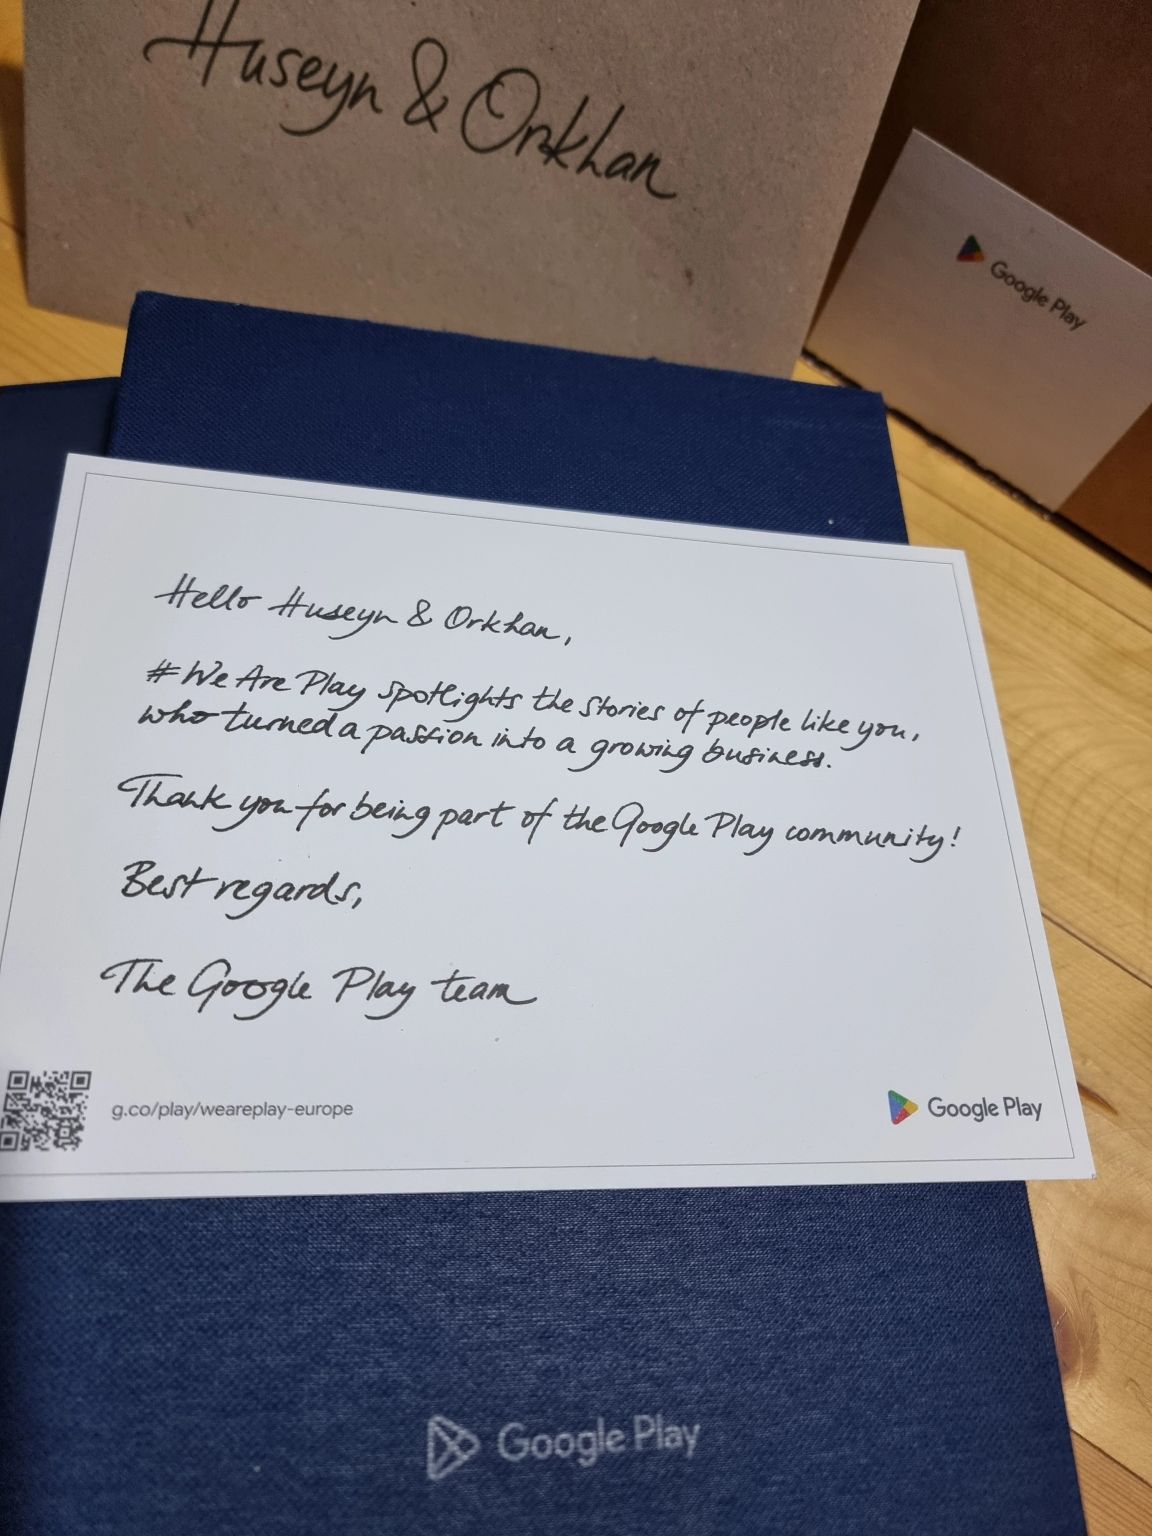 Huseyn & Orkhan
Google Play
Hello Huseyn & Orkhan,
#WeArePlay spotlights the stories of people like you,
who turned a passion into a growing business.
Thank you for being part of the Google Play community!
Best regards,
The Google Play team
g.co/play/weareplay-europe
Google Play
Google Play